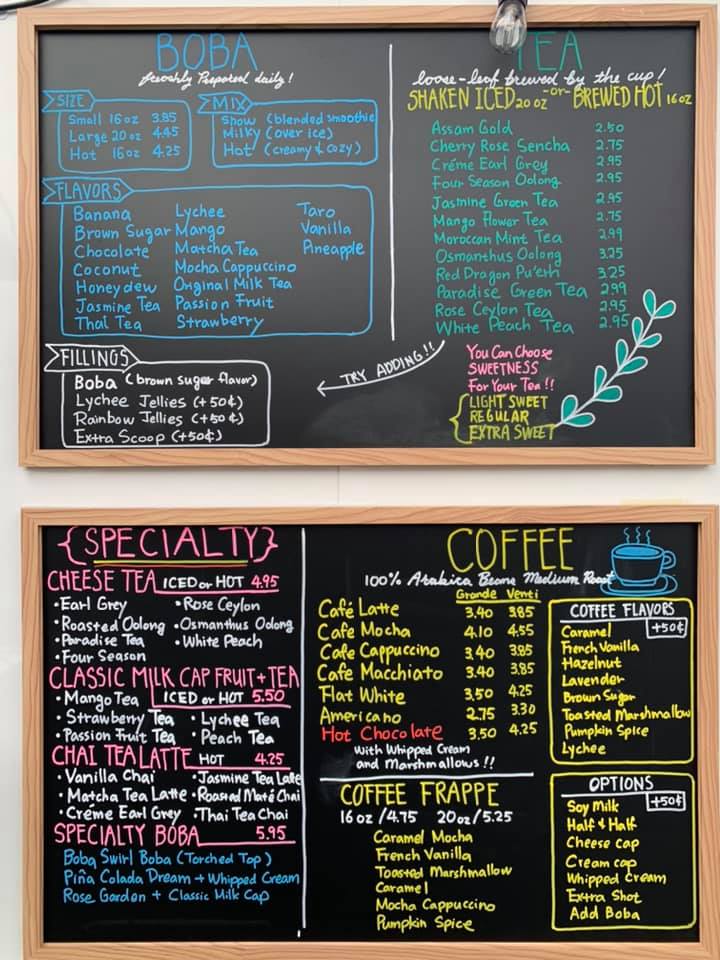 BOBA
freshly Prepared daily!
SIZE
Small 16oz 3.85
Large 20oz 4.45
Hot 16oz 4.25
MIX
Snow (blended smoothie
Milky (over ice)
Hot (creamy & cozy)
FLAVORS
Banana Lychee Taro
Brown Sugar Mango Vanilla
Chocolate Matcha Tea Pineapple
Coconut Mocha Cappuccino
Honeydew Original Milk Tea
Jasmine Tea Passion Fruit
Thai Tea Strawberry
FILLINGS
Boba (brown sugar flavor)
Lychee Jellies (+50¢)
Rainbow Jellies (+50¢)
Extra Scoop (+50¢)
TRY ADDING!!
TEA
loose-leaf brewed by the cup!
SHAKEN ICED 20oz -or- BREWED HOT 16oz
Assam Gold 2.50
Cherry Rose Sencha 2.75
Créme Earl Grey 2.95
Four Season Oolong 2.95
Jasmine Green Tea 2.95
Mango Flower Tea 2.75
Moroccan Mint Tea 2.99
Osmanthus Oolong 3.25
Red Dragon Pu'erh 3.25
Paradise Green Tea 2.99
Rose Ceylon Tea 2.95
White Peach Tea 2.95
You Can Choose
SWEETNESS
For Your Tea!!
LIGHT SWEET
REGULAR
EXTRA SWEET
{SPECIALTY}
CHEESE TEA ICED or HOT 4.95
•Earl Grey •Rose Ceylon
•Roasted Oolong •Osmanthus Oolong
•Paradise Tea •White Peach
•Four Season
CLASSIC MILK CAP FRUIT+TEA
•Mango Tea ICED or HOT 5.50
•Strawberry Tea •Lychee Tea
•Passion Fruit Tea •Peach Tea
CHAI TEA LATTE HOT 4.25
•Vanilla Chai •Jasmine Tea Latte
•Matcha Tea Latte •Roasted Maté Chai
•Créme Earl Grey •Thai Tea Chai
SPECIALTY BOBA 5.95
Boba Swirl Boba (Torched Top)
Piña Colada Dream + Whipped Cream
Rose Garden + Classic Milk Cap
COFFEE
100% Arabica Beans Medium Roast
Grande Venti
Café Latte 3.40 3.85
Cafe Mocha 4.10 4.55
Cafe Cappuccino 3.40 3.85
Cafe Macchiato 3.40 3.85
Flat White 3.50 4.25
Americano 2.75 3.30
Hot Chocolate 3.50 4.25
with Whipped Cream
and Marshmallows!!
COFFEE FRAPPE
16oz/4.75 20oz/5.25
Caramel Mocha
French Vanilla
Toasted Marshmallow
Caramel
Mocha Cappuccino
Pumpkin Spice
COFFEE FLAVORS
+50¢
Caramel
French Vanilla
Hazelnut
Lavender
Brown Sugar
Toasted Marshmallow
Pumpkin Spice
Lychee
OPTIONS
+50¢
Soy Milk
Half & Half
Cheese cap
Cream cap
Whipped Cream
Extra Shot
Add Boba